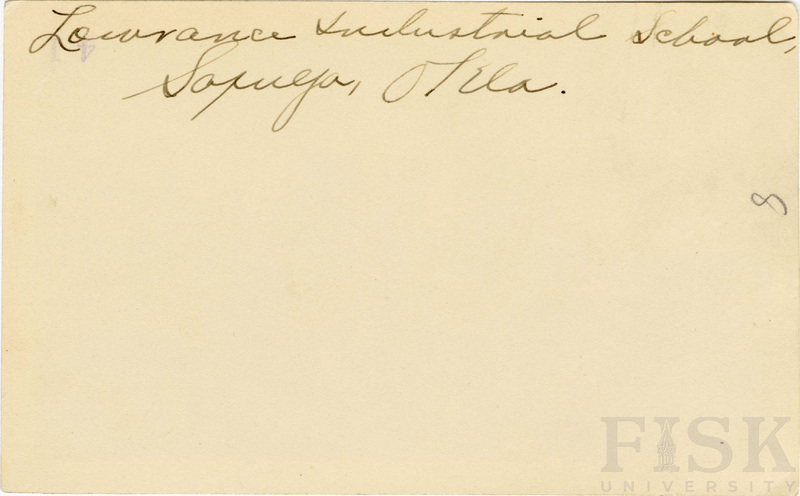 Lowrance Industrial School,
Sapulpa, Okla.
8
FISK
UNIVERSITY